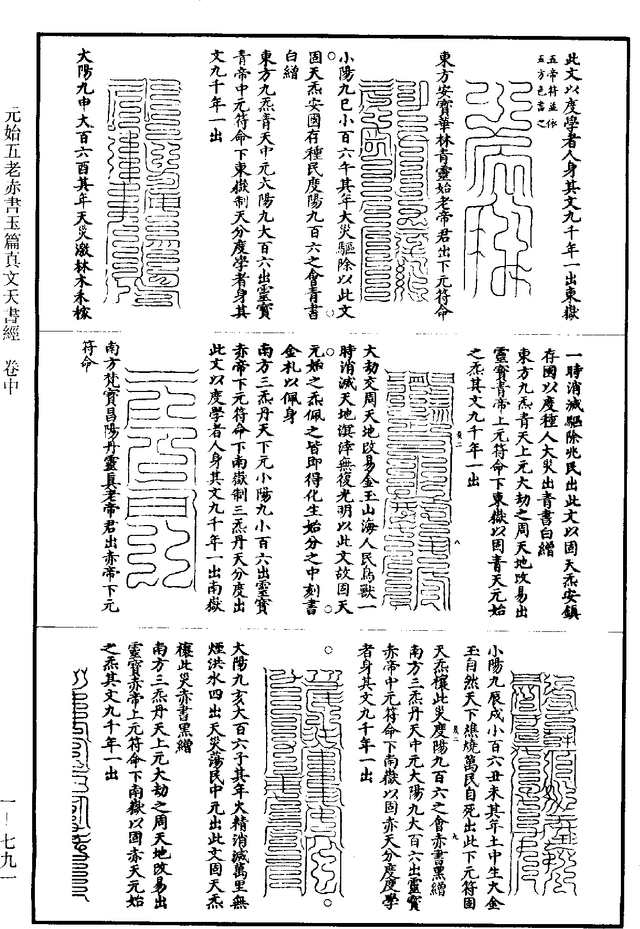 此文以度學者人身其文九千年一出東嶽
五帝符並依
五方色書之
東方安寶華林青靈始老帝君出下元符命
小陽九巳小百六午其年大災驅除以此文
固天炁安國存種民度陽九百六之會青書
白繒
東方九炁青天中元大陽九大百六出靈寶
青帝中元符命下東嶽制天分度學者身其
文九千年一出
大陽九申大百六酉其年天災激林木未稼
一時消滅驅除兆民出此文以固天炁安鎮
存國以度種人大災出青書白繒
東方九炁青天上元大劫之周天地改易出
靈寶青帝上元符命下東嶽以固青天元始
之炁其文九千年一出
大劫交周天地改易金玉山海人民鳥獸一
時消滅天地溟涬無復光明以此文故固天
元始之炁佩之皆即得化生始分之中刻書
金札以佩身
南方三炁丹天下元小陽九小百六出靈寶
赤帝下元符命下南嶽制三炁丹天分度出
此文以度學者人身其文九千年一出南嶽
南方梵寶昌陽丹靈真老帝君出赤帝下元
符命
小陽九辰戌小百六丑未其年土中生大金
玉自然天下燋燒萬民自死出此下元符固
天炁禳此災度陽九百六之會赤書黑繒
南方三炁丹天中元大陽九大百六出靈寶
赤帝中元符命下南嶽以固赤天分度度學
者身其文九千年一出
大陽九亥大百六子其年火精消滅萬里無
煙洪水四出天災蕩民中元出此文固天炁
禳此災赤書黑繒
南方三炁丹天上元大劫之周天地改易出
靈寶赤帝上元符命下南嶽以固赤天元始
之炁其文九千年一出
元始五老赤書玉篇真文天書經 卷中
一－七九一